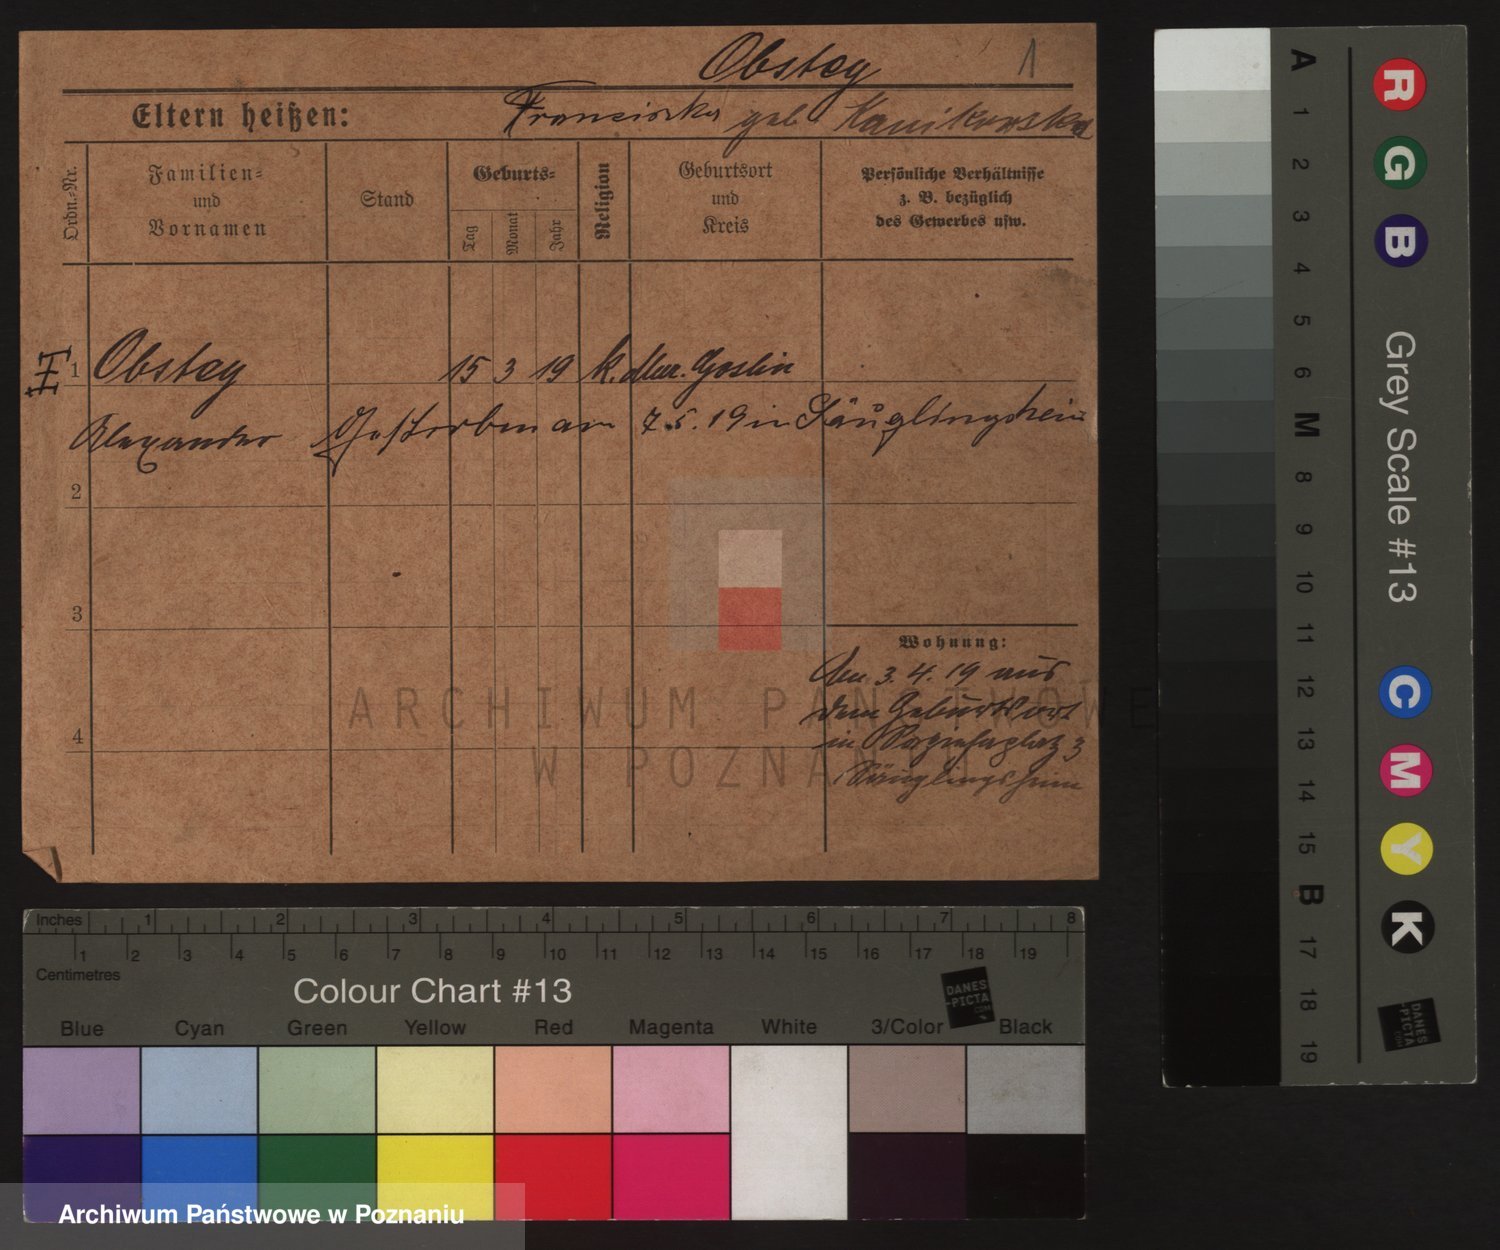 Obstey 1
Eltern heißen: Franciska geb Kanikowska
Ordn.-Nr.
Familien-
und
Vornamen
Stand
Geburts-
Tag
Monat
Jahr
Religion
Geburtsort
und
Kreis
Persönliche Verhältnisse
z. B. bezüglich
des Gewerbes usw.
1 Obstey 15 3 19 k. Mur. Goslin
Alexander Gestorben am 7.5.19 in Säuglingsheim
2
3
4
Wohnung:
Den 3.4.19 aus
dem Geburtsort
in 3
Säuglingsheim
ARCHIWUM PAŃSTWOWE
W POZNANIU
Inches 1 2 3 4 5 6 7 8
1 2 3 4 5 6 7 8 9 10 11 12 13 14 15 16 17 18 19
Centimetres
Colour Chart #13
DANES
-PICTA
.COM
Blue Cyan Green Yellow Red Magenta White 3/Color Black
Archiwum Państwowe w Poznaniu
A 1 2 3 4 5 6 M 8 9 10 11 12 13 14 15 B 17 18 19
R G B
Grey Scale #13
C M Y K
DANES
-PICTA
.COM